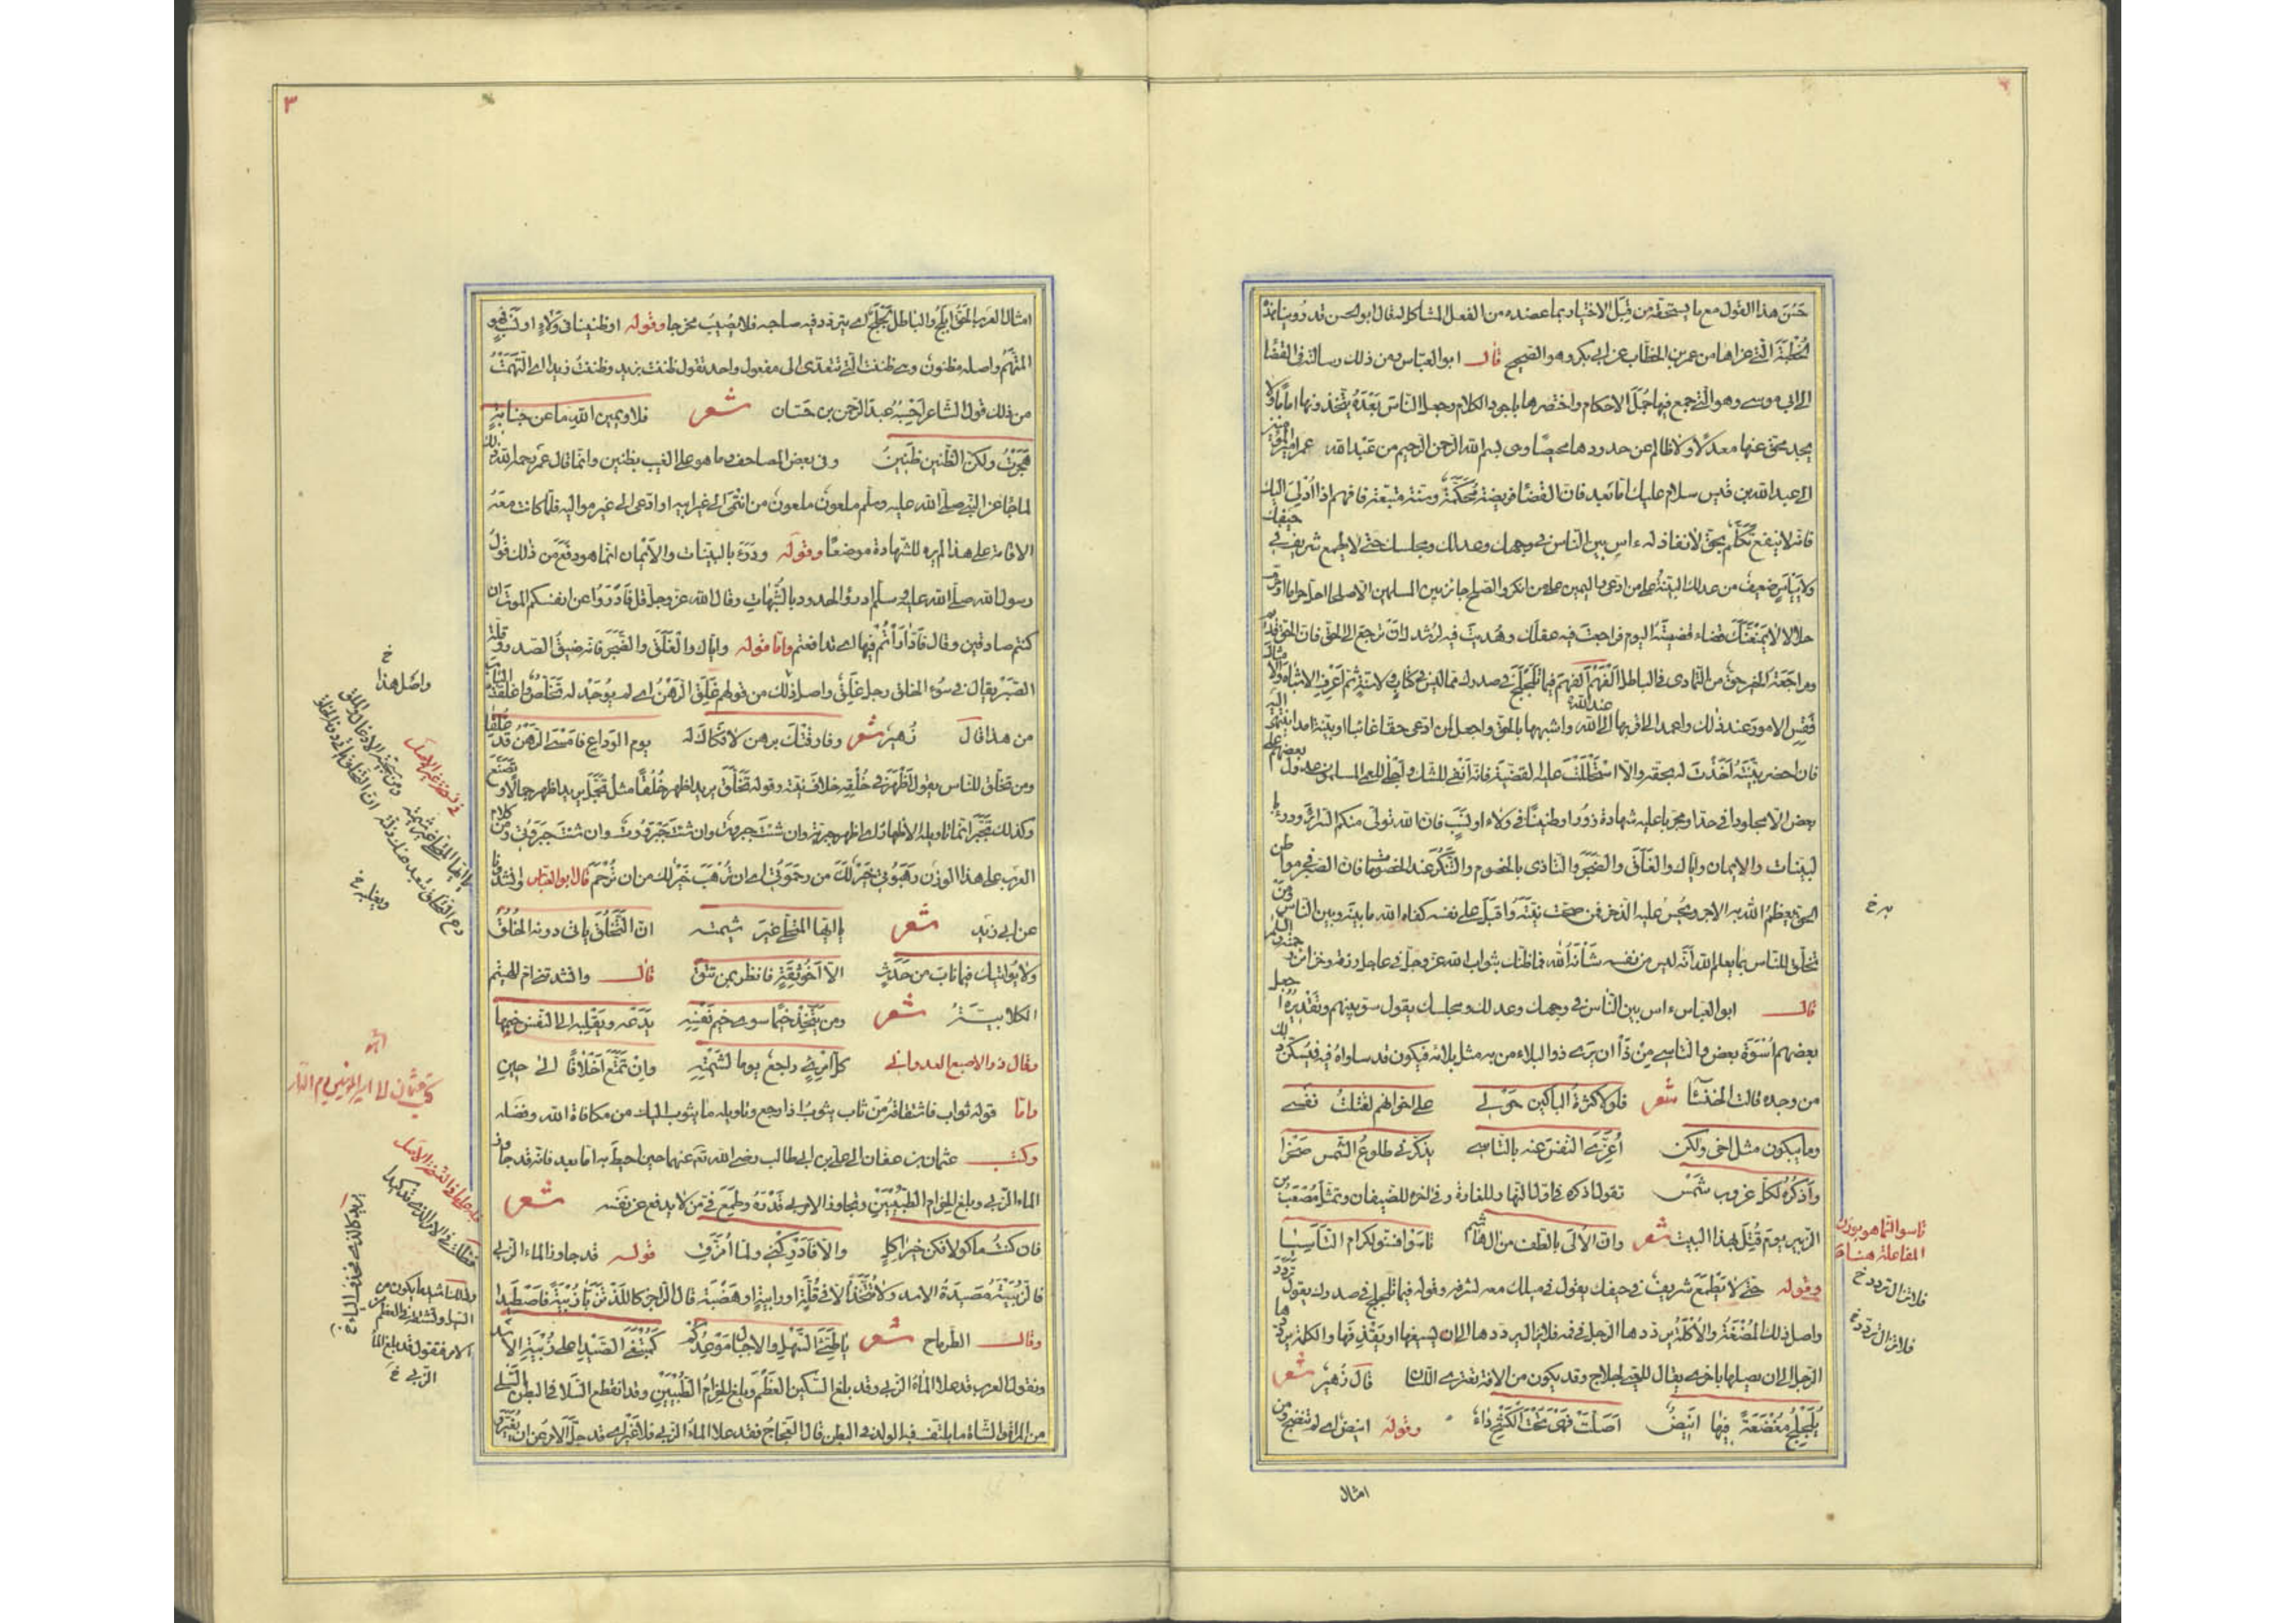 حَسُنَ هذا القول مع ما يستحقه من قِبَل الاختيار بما عضده من الفعل المشاكل له قال ابو الحسن قد رُوِينا هذه
الخُطبَة الّتي عزاها من عمر بن الخطّاب عن ابي بكر وهو الصحيح قال ابو العبّاس ومن ذلك رسالته في القضا
الى ابي موسى وهو الّتي جمع فيها جُمَل الاحكام واختصرها باجود الكلام وجعل الناس بَعْدَهُ يتّخذونها امامًا ولا
يجد محق عنها معدلًا ولا ظالم عن حدودها محيصًا وهى بسم الله الرحمن الرحيم من عَبْد الله عمر امير المؤمنين
الى عبد الله بن قيس سلام عليك امّا بعد فانّ القضاء فريضة مُحكَمَة وسنة متّبعة فافهم اذا اُدْلِىَ اليك
فانّه لا ينفع تَكَلُّم بحق لا نفاذ له ءاسِ بين النّاس في وجهك وعدلك ومجلسك حتى لا يطمع شريف في حيفك
ولا ييأس ضعيف من عدلك البيّنة على من ادّعى واليمين على من انكر والصّلح جائز بين المسلمين الا صلحا احلّ حراما او حرّم
حلالا لا يَمْنَعَنَّكَ قضاء قضيتَه اليوم فراجعتَ فيه عقلك وهُديتَ فيه لرُشدك انْ ترجع الى الحقّ فانّ الحق قديم
ومراجَعَة الحق خير من التّمادى في الباطل اَلفَهْمَ اَلفَهْمَ فيما تَلَجْلَجَ في صدرك ممّا ليس في كتاب ولا سنة ثم اعْرِفِ الاشباه والامثال
فَقِسِ الامور عند ذلك واعمد الى اقربها الى الله واشبهها بالحق واجعل لمن ادّعى حقّا غائبا او بينة امدا ينتهى اليه
فان احضر بيّنتَه اَخَذتَ له بحقه والّا اسْتَحْلَلْتَ عليه القضيّة فانّه اَنْفى للشك واَجْلى للعمى المسلمون عدول بعضهم على
بعض الّا مجلودا في حدّ او مجرّبا عليه شهادة زور او ظنينًا في ولاء او نَسَبٍ فان الله تولّى منكم السّرائر ودرءَ
بالبيّنات والايمان وايّاك والغَلَق والضَّجَر والتّاذى بالخصوم والتَّنَكُّر عند الخصومات فانّ الحقّ في مواطن
الحق يعظمُ الله به الاجر ويُحْسِنُ عليه الذّخر فمن صحّت نيّتُه واَقبَل على نفسه كفاه الله ما بينه وبين النّاس ومَنْ
تخلّق للنّاس بما يعلم الله اَنّه ليس من نفسه شَانَهُ الله فما ظنّك بثواب الله عزّ وجلّ في عاجل رزقه وخزائن رحمته والسلام
قال ابو العبّاس ءاس بين النّاس في وجهك وعدلك ومجلسك يقول سوّ بينهم وتقديره اجعل
بعضهم اُسْوَة بعض والتّاسى مِنْ ذا ان يرى ذو البلاء من به مثل بلائه فيكون قد ساواه فيه فيُسَكِّن ذلك
من وجده قالت الخنساء شعر فلولا كثرة الباكين حولى على اخوانهم لقتلتُ نفسى
وما يبكون مثل اخى ولكن اُعزّى النّفس عنه بالتّاسى يذكّرنى طلوعُ الشّمس صخرا
واَذكُرُه لكلّ غروب شمس تقول اذكره في اوّل النّهار للغارة وفى اخره للضّيفان وتمثّل مُصْعَب بن
الزبير يوم قُتِلَ بهذا البيت شعر وانّ الاُلى بالطّف من ال هاشم تاسَوْا فسنّوا للكرام التّاسِيا
وقوله حتى لا يَطْمَعَ شريف في حيفك يقول في ميلك معه لشرفه وقوله فيما تلجلج في صدرك يقول تردّد
واصل ذلك المُضغَة والاُكْلَة يردّدها الرّجل في فيه فلا تزال تتردد الى ان يسيغها او يَقْذِفَها والكلمة يردّدها
الرّجل الى ان يصلها باخرى يقال للعيىّ لجلاج وقد يكون من الافة تعترى اللّسان قال زُهَير شعر
يُلَجْلِجُ مُضْغَةً فيها انيضٌ اَصَلَّتْ فهى تحت الكَشْحِ داءُ وقوله انيض اى لم تنضج ومن
امثال
به خ
تاسوا انّما هو بوزن
المفاعلة هنا
فلا تزال تتردد خ
فلا تزال تتردد خ
٣
امثال العرب الحقّ ابلج والباطل لَجْلَج اى يتردّد فيه صاحبه فلا يصيب مخرجا وقوله او ظنينا في ولاء او نَسَبٍ فهو
المتّهَم واصله مظنون وهى ظننت الّتى تتعدّى الى مفعول واحد تقول ظننت بزيد وظننتُ زيدا اى اتّهمتُ
من ذلك قول الشاعر اَحْسِبُهُ عبد الرّحمن بن حسّان شعر فلا ويمينِ اللهِ ما عن جنايةٍ
هُجِرْتُ ولكنّ الظّنين ظَنينُ وفى بعض المصاحف وما هو على الغيب بظنين وانّما قال عمر رحمه الله ذلك
لما جاء عن النّبى صلّى الله عليه وسلّم ملعون ملعون من انتَمى الى غير ابيه او ادّعى الى غير مواليه فلمّا كانت معه
الاقامة على هذا لم يره للشّهادة موضعًا وقوله ودَرَءَ بالبيّنات والاَيْمان انّما هو دفَعَ من ذلك قولُ
رسول الله صلّى الله عليه وسلّم ادرؤا الحدود بالشُّبُهات وقال الله عزّ وجلّ قل فَادْرَؤا عن انفسكم الموت ان
كنتم صادقين وقال فَادّارَأتُم فيها اى تدافعتم وامّا قوله وايّاك والغَلَق والضَّجَر فانّه ضيقُ الصّدر وقلّة
الصّبْر يقال في سُوء الخلق رجل غَلِق واصل ذلك من قولهم غَلِق الرّهنُ اى لم يوجَد له تَخلُّص واغلقت الباب
من هذا قال زُهير شعر وفارقَتْكَ برهن لا فكاك له يوم الوداع فامسى الرّهنُ قد غَلِقا
ومن تخلّق للنّاس يقول اَظْهَرَ في خُلُقِه خلاف نيّته وقوله تَخَلَّق يريد اظهر خُلُقًا مثل تَجَمَّل يريد اظهر جمالا وتَصَنَّع
وكذلك تَجَبَّر انّما تاويله الاظهار اى اظهر جبريّة وان شئت جبروتا وان شئت جَبَرُوّة وان شئت جَبَرُوتى ومن كلام
العرب على هذا الوزن رَهَبُوتى خير لكَ من رَحَمُوتى اى ان تُرْهَبَ خير لك من ان تُرْحَم قال ابو العبّاس وانشدونا
عن ابى زيد شعر يا ايّها المتحلّى غيرَ شيمته انّ التّخَلُّق ياتى دونه الخُلُقُ
ولا يُواتيك فيما نابَ من حَدَثٍ الّا اَخُو ثِقَةٍ فانظر بمن تَثِقُ قال وانشد تنى ام الهيثم
الكلابيّة شعر ومن يتّخِذْ خِيمًا سوى خيم نفسِه يَدَعْه ويغلبه الى النّفس خيمُها
وقال ذو الاصبع العدوانى كلّ امرِئٍ راجعٌ يوما لشيمته وان تمتّع اخلاقًا الى حين
وامّا قوله ثواب فاشتقاقه مِنْ ثاب يثوبُ اذا رجع وتاويله ما يثوب اليك من مكافاة الله وفضله
وكتب عثمان بن عفّان الى علىّ بن ابى طالب رضى الله تعالى عنهما حين احيط به امّا بعد فانّه قد جاوز
الماء الزّبى وبلغ الحزام الطُّبْيَيْنِ وتجاوز الامر بى قَدْرَهُ وطَمِعَ فىّ من لا يدفع عن نفسه شعر
فان كنتُ ماكولا فكن خيرَ اكلٍ والّا فادركنى ولمّا اُمزّقِ قوله قد جاوز الماء الزّبى
فالزُّبْيَةُ مَصيَدةُ الاسد ولا تُتّخَذُ الّا في قُلّةٍ او رابيةٍ او هَضْبَة قال الرّاجز كاللّذْ تَزَبّى زُبْيَةً فاصْطِيدا
وقال الطّرِمّاح شعر يا طَيّئ السَّهْلِ والاجبالِ مَوْعِدُكم كمُبْتَغى الصّيْدِ اعلى زُبْيَةِ الاسد
وتقول العرب قد علا الماءُ الزّبى وقد بلغ السّكّين العظم وبلغ الحزامُ الطُّبْيَيْنِ وقد انقطع السّلا في البطن السّلى
من المراة والشّاة ما يلتفّ فيه الولد في البطن قال العجّاج فقد علا الماءُ الزّبى فلا غِيَرْ اى قد جلّ الامر عن ان يُغَيَّر
واصل هذا خ
في نسخة غير الاصل
يا ايها المتحلّى غير شيمته
كتب عثمان الى امير المؤمنين يوم الدّار
الزّبى خ